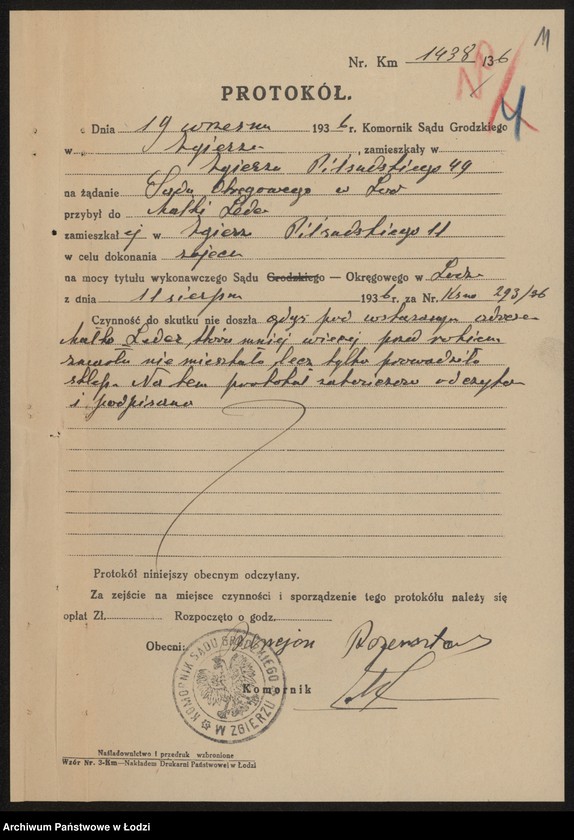 11
Nr. Km 1438/36
4
PROTOKÓŁ.
Dnia 19 września 1936 r. Komornik Sądu Grodzkiego
w Zgierzu, zamieszkały w
Zgierzu Piłsudskiego 49
na żądanie Sądu Okręgowego w Łodzi
przybył do Małki Leder
zamieszkałej w Zgierz Piłsudskiego 11
w celu dokonania zajęcia
na mocy tytułu wykonawczego Sądu Grodzkiego — Okręgowego w Łodzi
z dnia 11 sierpnia 1936 r. za Nr. 293/36
Czynność do skutku nie doszła gdyż pod wskazanym adresem
Małka Leder mniej więcej przed rokiem
nie mieszkała lecz tylko prowadziła
sklep. Na tem protokół zakończono odczytano
i podpisano
Protokół niniejszy obecnym odczytany.
Za zejście na miejsce czynności i sporządzenie tego protokółu należy się
opłat Zł. Rozpoczęto o godz.
Obecni:
Komornik
KOMORNIK SĄDU GRODZKIEGO W ZGIERZU
Naśladownictwo i przedruk wzbronione
Wzór Nr. 3-Km—Nakładem Drukarni Państwowej w Łodzi
Archiwum Państwowe w Łodzi